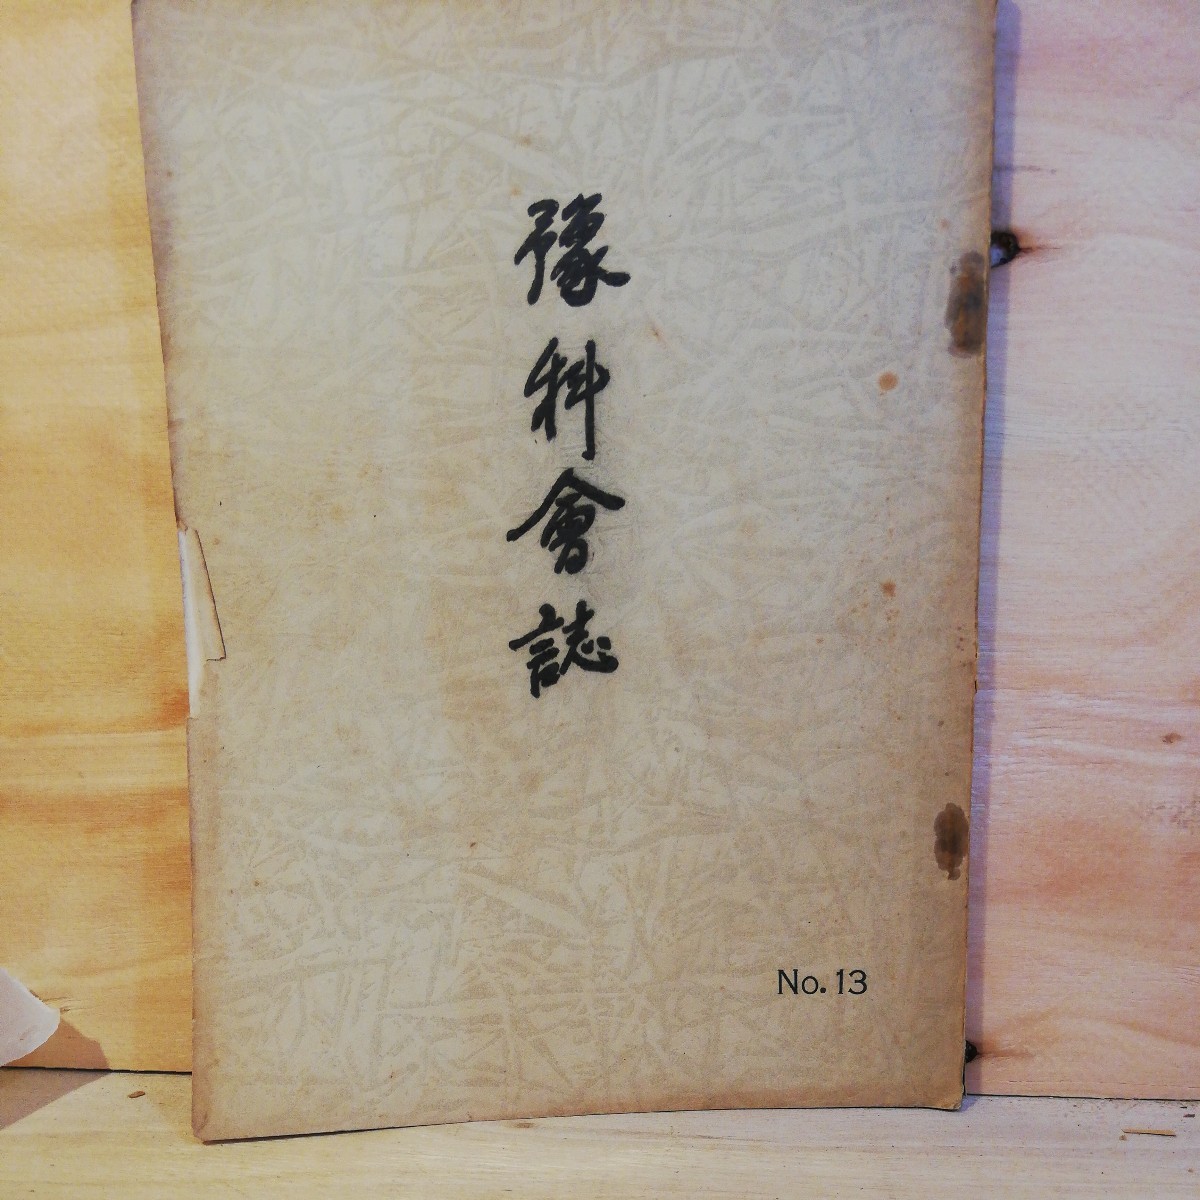 豫科會誌
No. 13